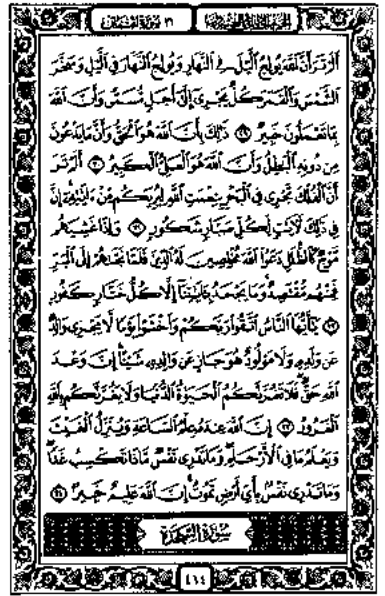 ٣١ سورة لقمان
أَلَمْ تَرَ أَنَّ ٱللَّهَ يُولِجُ ٱلَّيْلَ فِى ٱلنَّهَارِ وَيُولِجُ ٱلنَّهَارَ فِى ٱلَّيْلِ وَسَخَّرَ
ٱلشَّمْسَ وَٱلْقَمَرَ كُلٌّ يَجْرِىٓ إِلَىٰٓ أَجَلٍ مُّسَمًّى وَأَنَّ ٱللَّهَ
بِمَا تَعْمَلُونَ خَبِيرٌ ٢٩ ذَٰلِكَ بِأَنَّ ٱللَّهَ هُوَ ٱلْحَقُّ وَأَنَّ مَا يَدْعُونَ
مِن دُونِهِ ٱلْبَٰطِلُ وَأَنَّ ٱللَّهَ هُوَ ٱلْعَلِىُّ ٱلْكَبِيرُ ٣٠ أَلَمْ تَرَ
أَنَّ ٱلْفُلْكَ تَجْرِى فِى ٱلْبَحْرِ بِنِعْمَتِ ٱللَّهِ لِيُرِيَكُم مِّنْ ءَايَٰتِهِۦٓ إِنَّ
فِى ذَٰلِكَ لَءَايَٰتٍ لِّكُلِّ صَبَّارٍ شَكُورٍ ٣١ وَإِذَا غَشِيَهُم
مَّوْجٌ كَٱلظُّلَلِ دَعَوُا۟ ٱللَّهَ مُخْلِصِينَ لَهُ ٱلدِّينَ فَلَمَّا نَجَّىٰهُمْ إِلَى ٱلْبَرِّ
فَمِنْهُم مُّقْتَصِدٌ وَمَا يَجْحَدُ بِـَٔايَٰتِنَآ إِلَّا كُلُّ خَتَّارٍ كَفُورٍ
٣٢ يَٰٓأَيُّهَا ٱلنَّاسُ ٱتَّقُوا۟ رَبَّكُمْ وَٱخْشَوْا۟ يَوْمًا لَّا يَجْزِى وَالِدٌ
عَن وَلَدِهِۦ وَلَا مَوْلُودٌ هُوَ جَازٍ عَن وَالِدِهِۦ شَيْـًٔا إِنَّ وَعْدَ
ٱللَّهِ حَقٌّ فَلَا تَغُرَّنَّكُمُ ٱلْحَيَوٰةُ ٱلدُّنْيَا وَلَا يَغُرَّنَّكُم بِٱللَّهِ
ٱلْغَرُورُ ٣٣ إِنَّ ٱللَّهَ عِندَهُۥ عِلْمُ ٱلسَّاعَةِ وَيُنَزِّلُ ٱلْغَيْثَ
وَيَعْلَمُ مَا فِى ٱلْأَرْحَامِ وَمَا تَدْرِى نَفْسٌ مَّاذَا تَكْسِبُ غَدًا
وَمَا تَدْرِى نَفْسٌۢ بِأَىِّ أَرْضٍ تَمُوتُ إِنَّ ٱللَّهَ عَلِيمٌ خَبِيرٌۢ ٣٤
سُورَةُ السَّجْدَةِ
٤١٤